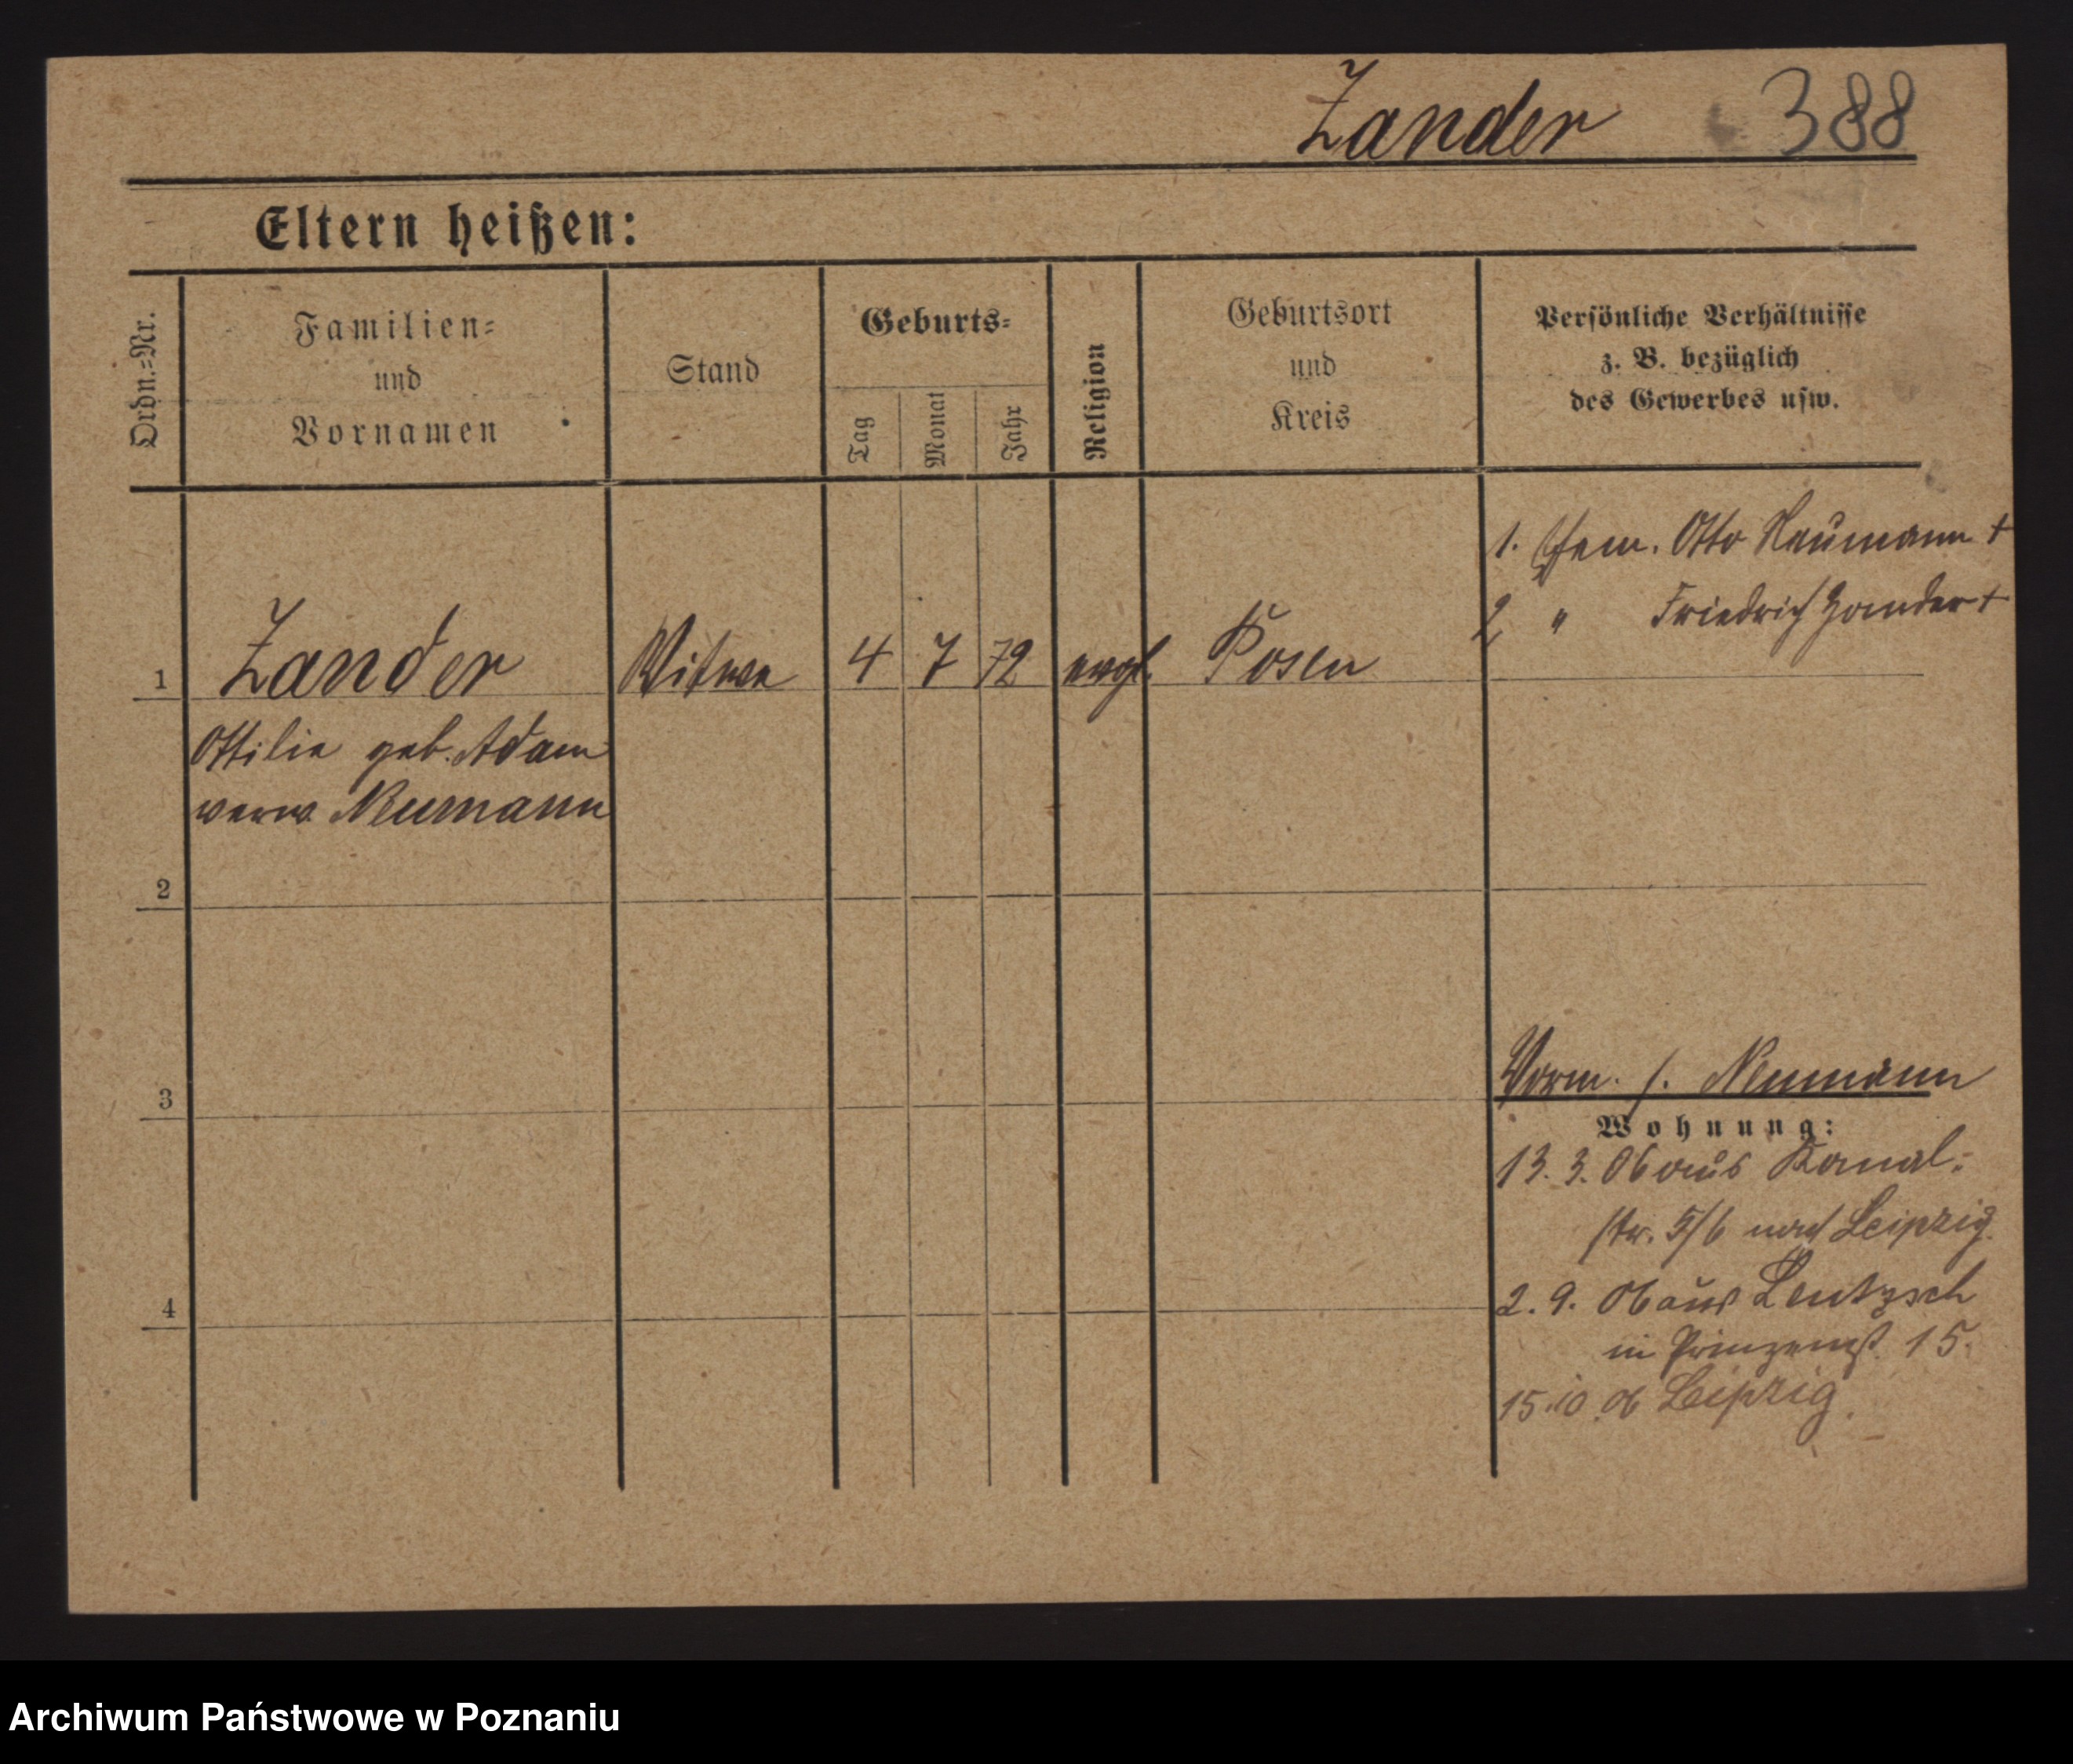 Zander 388
Eltern heißen:
Ordn.=Nr.
Familien=
und
Vornamen
Stand
Geburts=
Tag
Monat
Jahr
Religion
Geburtsort
und
Kreis
Persönliche Verhältnisse
z. B. bezüglich
des Gewerbes usw.
1. Ehem. Otto Neumann +
2, " Friedrich Zander +
1 Zander Witwe 4 7 72 evgl. Posen
Ottilie geb. Adam
verw. Neumann
2
3
Vorm. s. Neumann
Wohnung:
13. 3. 06 aus Kanal-
str. 5/6 nach Leipzig.
4
2. 9. 06 aus Leutzsch
in Prinzenst. 15.
15.10.06 Leipzig.
Archiwum Państwowe w Poznaniu